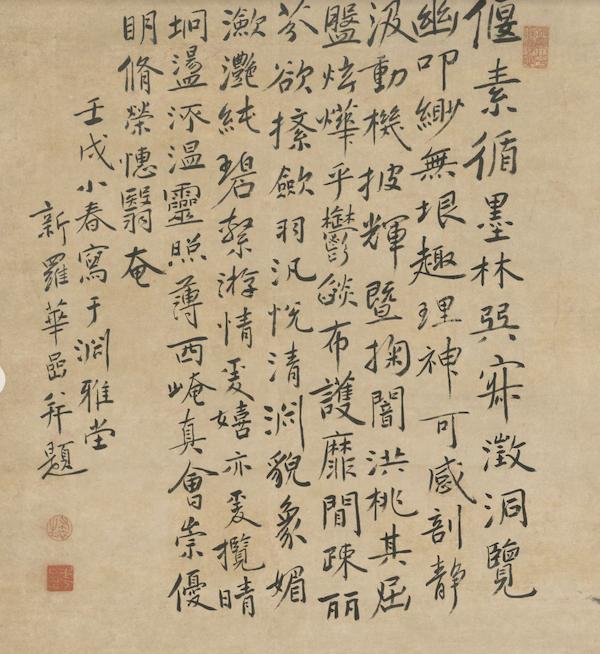 偃素循墨林巽寂澂洞覽
幽叩緲無垠趣理神可感剖靜
汲動機披輝暨掬闇洪桃其屈
盤炫燁乎鬱燄布護靡間疎丽
芬欲歛羽汎悅清淵貌象媚
瀲灩純碧縏游情爰嬉亦爰攬晴
坰盪流溫靈照薄西崦真會崇優
明脩榮憓翳奄
壬戌小春寫于淵雅堂
新羅華嵒并題